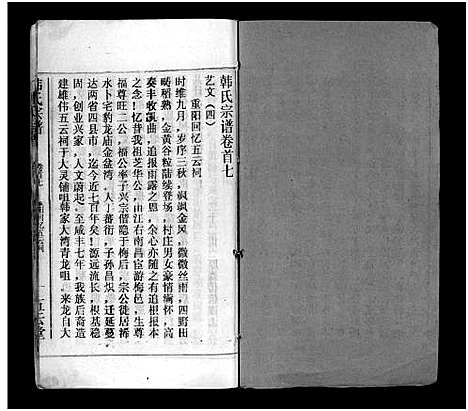 韩氏宗谱卷首七
艺文（四）
重阳回忆五云祠
时维九月，岁序三秋，飒飒金风，微微丝雨，四野田
畴稻熟，金黄谷粒陆续登场，村庄男女豪情缅怀，高
奏丰收凯曲，追报雨露之恩，余心亦随之有追根报本
之念！忆昔我祖芝华公，由江右南昌宦游梅邑，生尊
福尊旺二公，福公率子兴宗偕隐于梅后，宗公徒居褥
水卜宅豹龙庙金盆湾，人丁蕃衍，子孙昌炽，迁延蔓
达两省四县市，迄今近七百年矣！源远流长，根基稳
固，创业兴家，人文蔚起，至咸丰七年，我族后裔造
建雄伟五云祠于大灵铺咀韩家大湾青龙咀，来龙自大
韩氏宗谱
五云堂